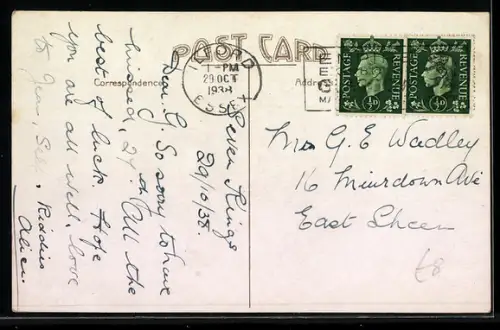 POST CARD
Correspondence
Address
ILFORD
1-PM
29 OCT
1938
ESSEX
POSTAGE REVENUE
½D
POSTAGE REVENUE
½D
Seven Kings
29/10/38.
Dear G. So sorry to have
missed, 24. All the
best of luck. Hope
you are all well, love
to Jean, Self, Kiddies
Alice.
Mrs G. E Wadley
16 Muirdown Ave
East Sheen
£8